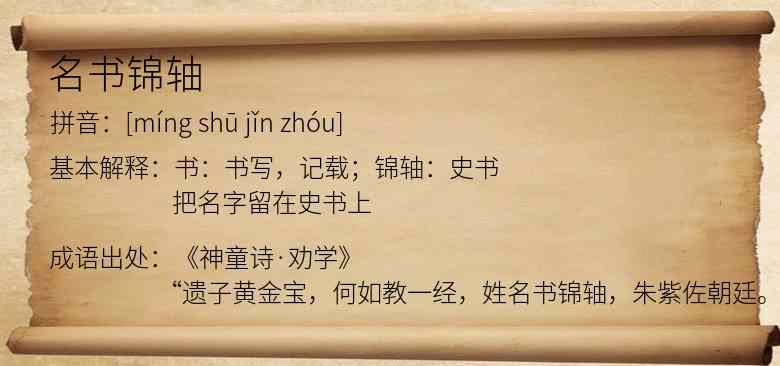 名书锦轴
拼音：[míng shū jǐn zhóu]
基本解释：书：书写，记载；锦轴：史书
把名字留在史书上
成语出处：《神童诗·劝学》
“遗子黄金宝，何如教一经，姓名书锦轴，朱紫佐朝廷。